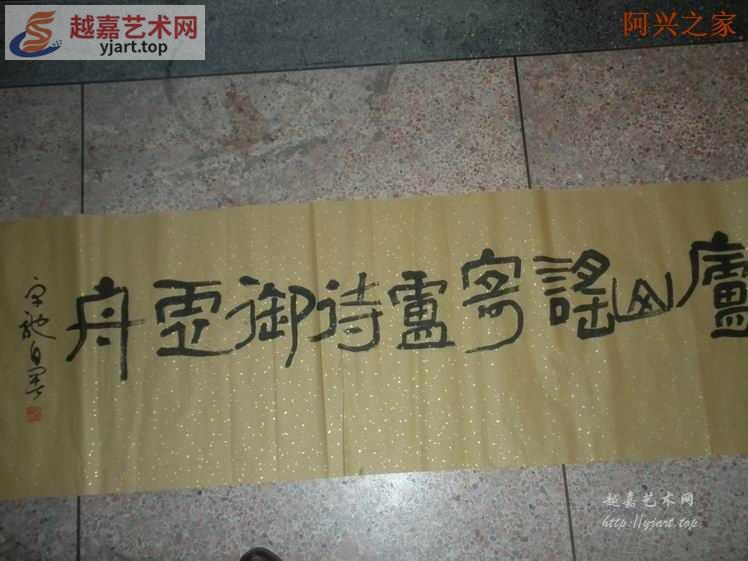 越嘉艺术网
yjart.top
阿兴之家
廬山謠寄盧待御虛舟
越嘉艺术网
http://yjart.top